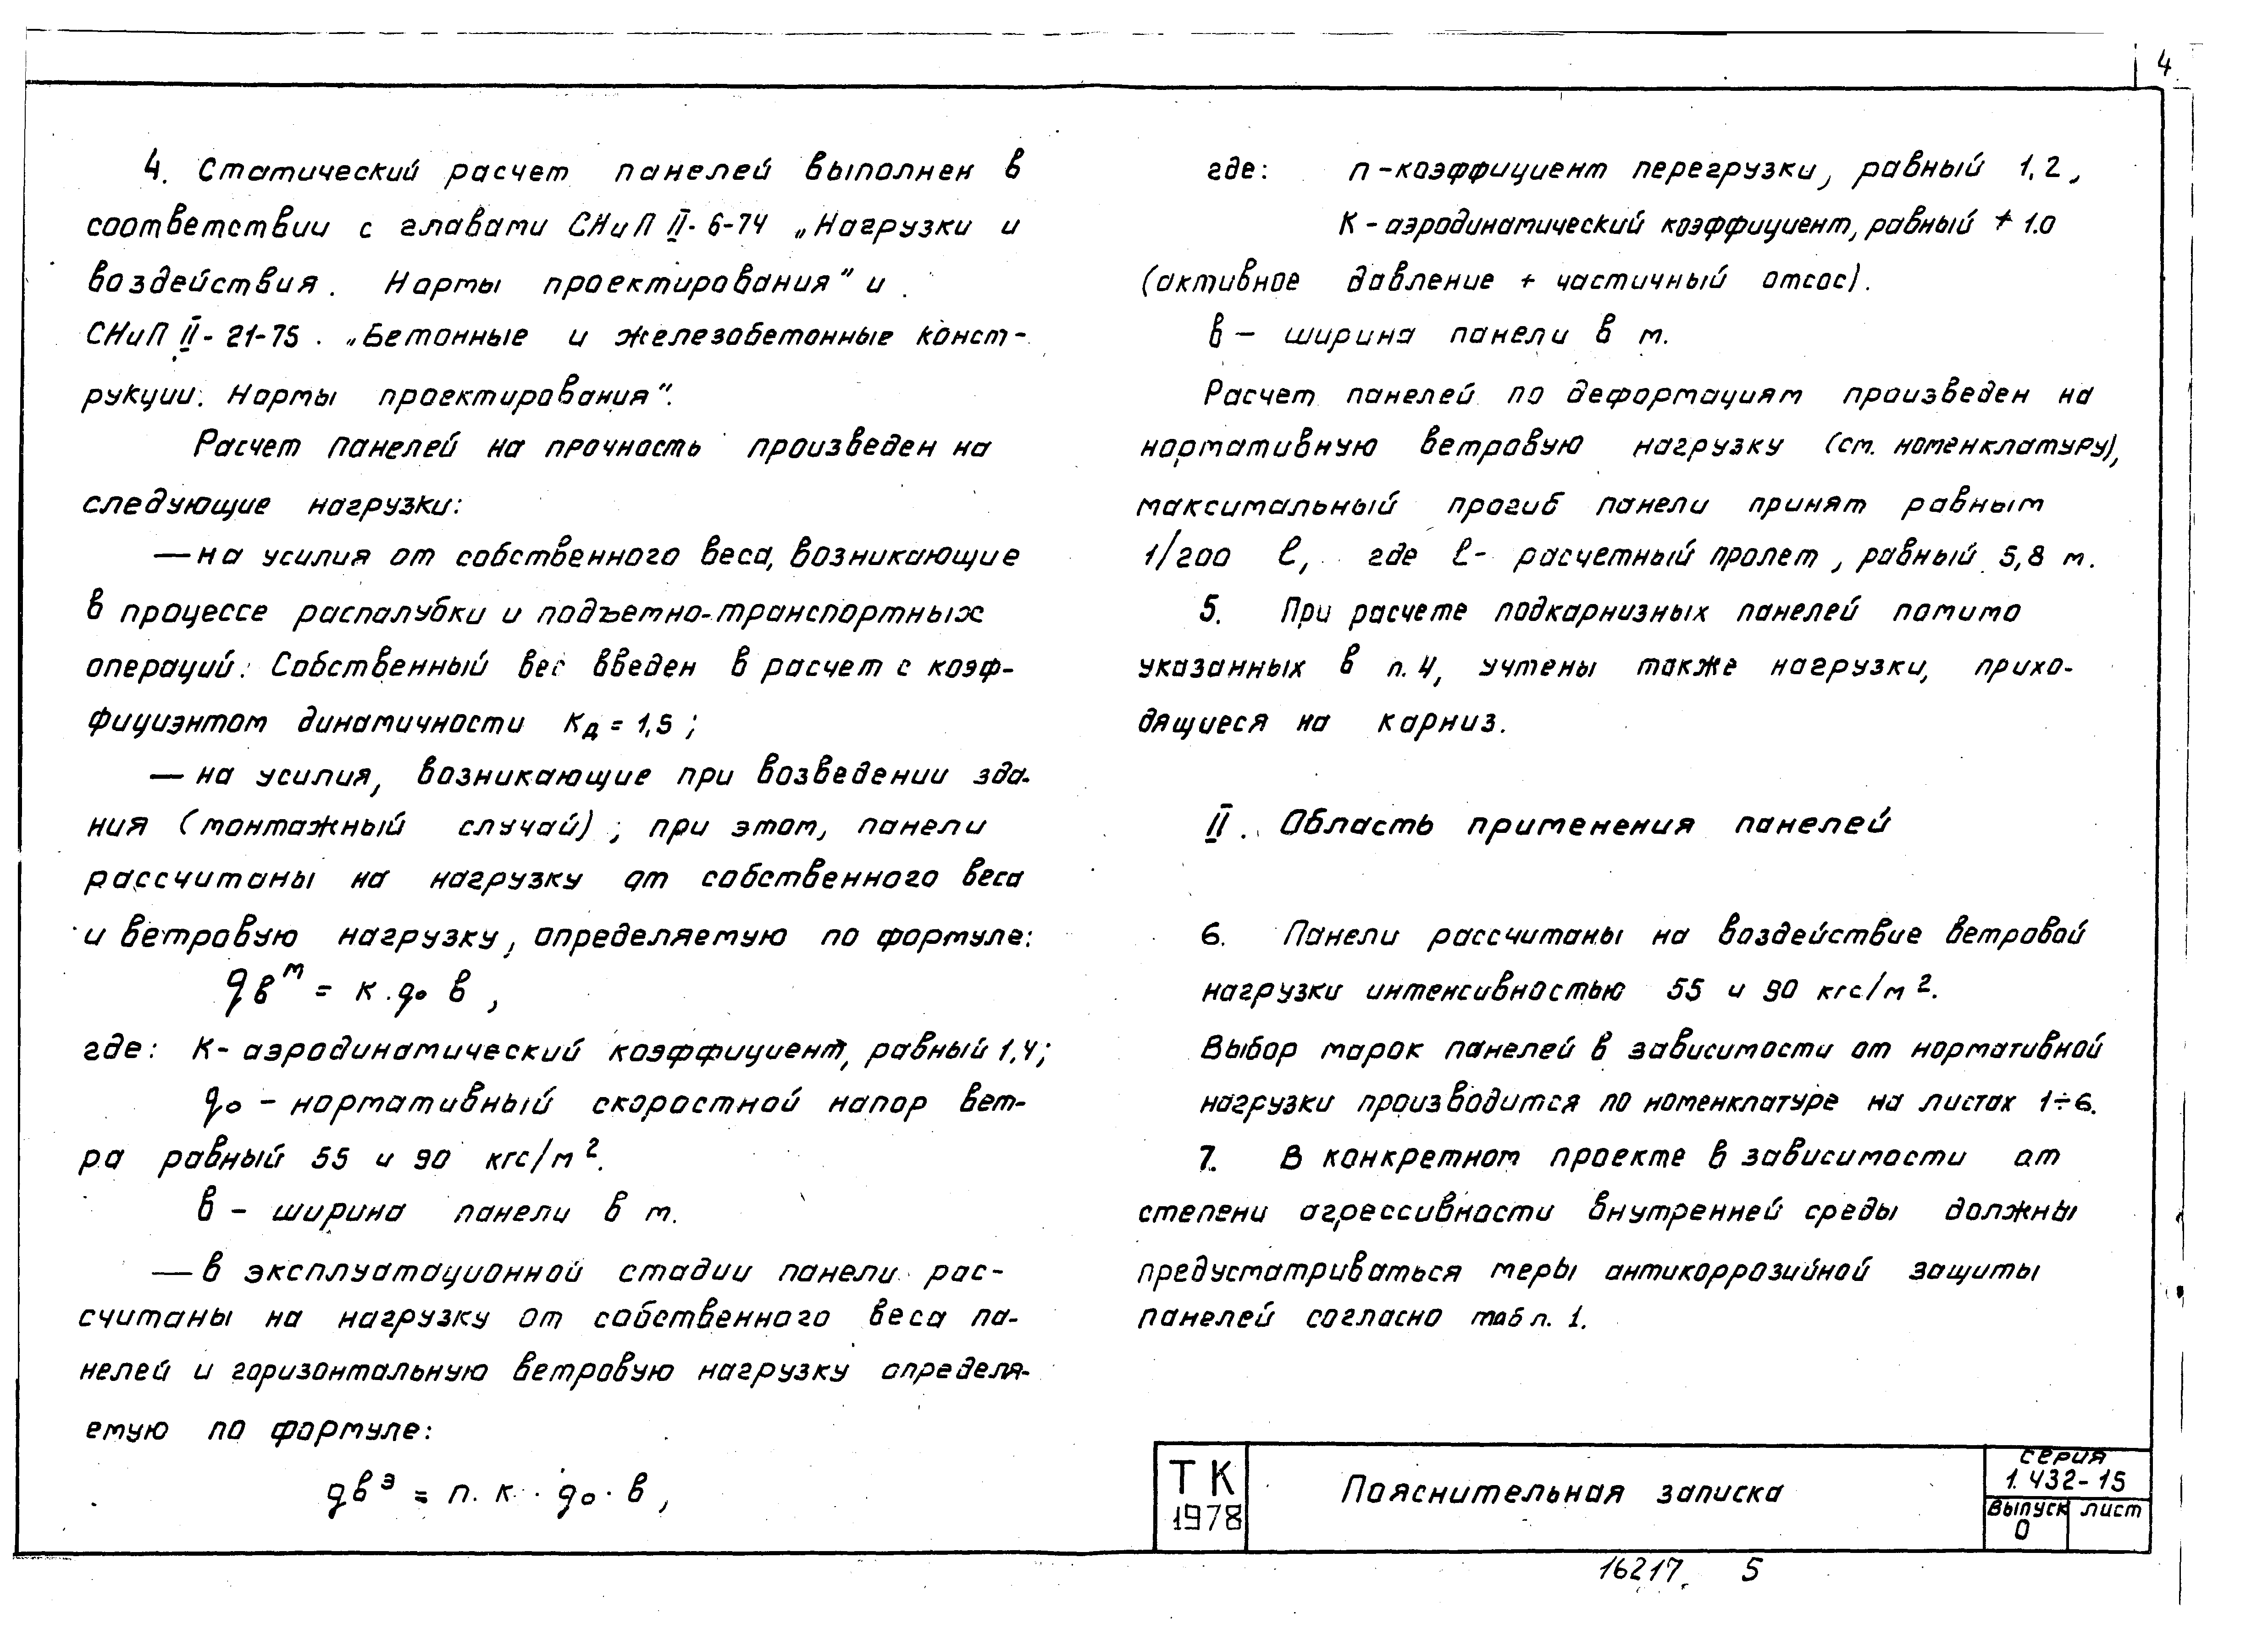 4
4. Статический расчет панелей выполнен в
соответствии с главами СНиП II-6-74 „Нагрузки и
воздействия. Нормы проектирования" и
СНиП II-21-75. „Бетонные и железобетонные конст-
рукции. Нормы проектирования".
Расчет панелей на прочность произведен на
следующие нагрузки:
— на усилия от собственного веса, возникающие
в процессе распалубки и подъемно-транспортных
операций. Собственный вес введен в расчет с коэф-
фициэнтом динамичности Кд = 1,5;
— на усилия, возникающие при возведении зда-
ния (монтажный случай); при этом, панели
рассчитаны на нагрузку от собственного веса
и ветровую нагрузку, определяемую по формуле:
qвᵐ = к. q₀ в,
где: К- аэродинамический коэффициент, равный 1,4;
q₀ - нормативный скоростной напор вет-
ра равный 55 и 90 кгс/м².
в - ширина панели в м.
— в эксплуатационной стадии панели рас-
считаны на нагрузку от собственного веса па-
нелей и горизонтальную ветровую нагрузку определя-
емую по формуле:
qвᵌ = п. к. · q₀ · в,
где: п-коэффициент перегрузки, равный 1,2,
К - аэродинамический коэффициент, равный + 1.0
(активное давление + частичный отсос).
в — ширина панели в м.
Расчет панелей по деформациям произведен на
нормативную ветровую нагрузку (см. номенклатуру),
максимальный прогиб панели принят равным
1/200 ℓ, где ℓ- расчетный пролет, равный 5,8 м.
5. При расчете подкарнизных панелей помимо
указанных в п.4, учтены также нагрузки, прихо-
дящиеся на карниз.
II. Область применения панелей
6. Панели рассчитаны на воздействие ветровой
нагрузки интенсивностью 55 и 90 кгс/м².
Выбор марок панелей в зависимости от нормативной
нагрузки производится по номенклатуре на листах 1÷6.
7. В конкретном проекте в зависимости от
степени агрессивности внутренней среды должны
предусматриваться меры антикоррозийной защиты
панелей согласно табл. 1.
ТК
1978
Пояснительная записка
серия
1.432-15
Выпуск лист
0
16217 5